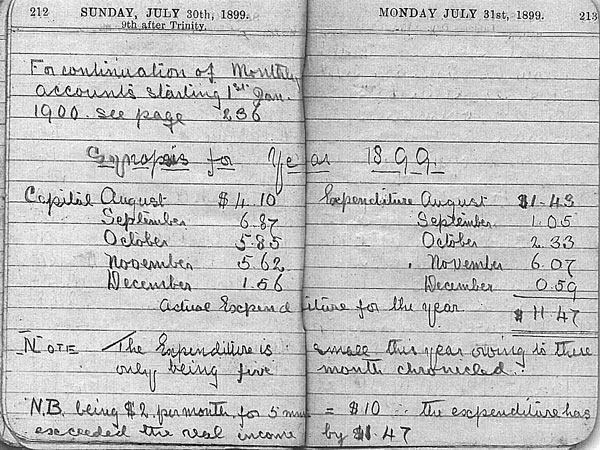 212 SUNDAY, JULY 30th, 1899.
9th after Trinity.
MONDAY JULY 31st, 1899. 213
For continuation of Monthly
accounts starting 1st Jan.
1900. see page 236
Synopsis for Year 1899.
Capital August $4.10
September 6.87
October 5.85
November 5.62
December 1.56
Expenditure August $1.43
September 1.05
October 2.33
November 6.07
December 0.59
Actual Expenditure for the year $11.47
NOTE The Expenditure is small this year owing to there
only being five month chronicled.
N.B. being $2 per month for 5 = $10 ∴ the expenditure has
exceeded the real income by $1.47